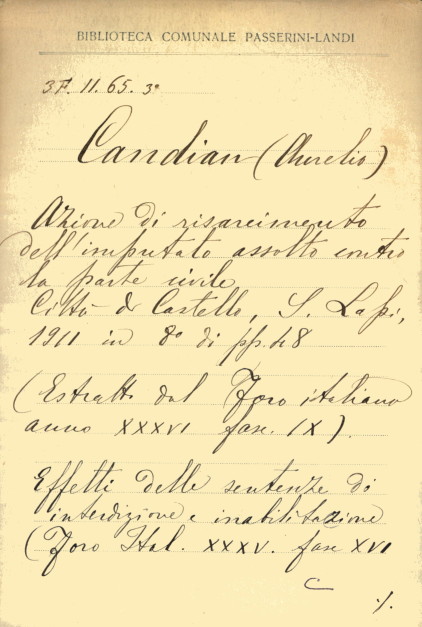 BIBLIOTECA COMUNALE PASSERINI-LANDI
3F. 11. 65. 3º
Candian (Aurelio)
Azione di risarcimento
dell'imputato assolto contro
la parte civile
Città di Castello, S. Lapi,
1911 in 8º di pp.
(Estratto dal Foro italiano
anno XXXVI fasc. IX).
Effetti delle sentenze di
interdizione e inabilitazione
(Foro Ital. XXXV. fasc XVI
./.